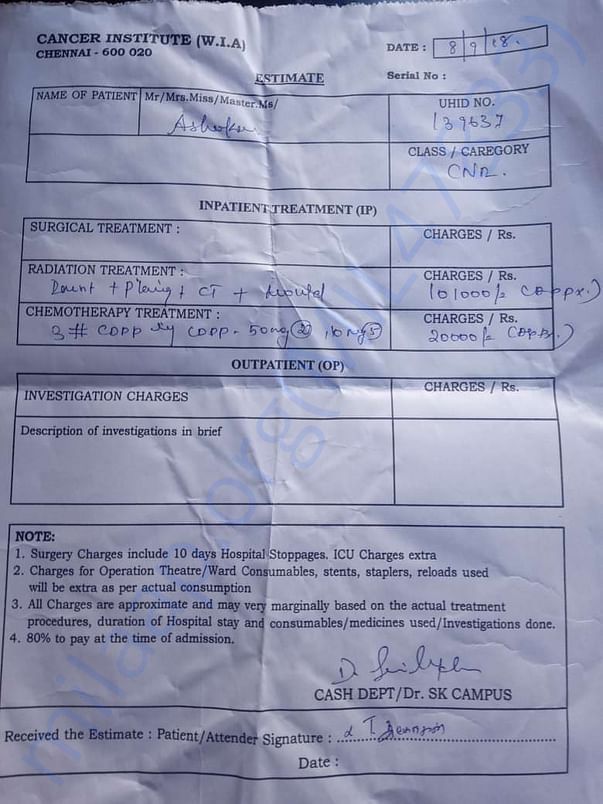 CANCER INSTITUTE (W.I.A)
CHENNAI - 600 020
DATE : 8 9 18.
ESTIMATE
Serial No :
NAME OF PATIENT Mr/Mrs.Miss/Master.Ms/
UHID NO.
139637
CLASS / CAREGORY
INPATIENT TREATMENT (IP)
SURGICAL TREATMENT :
CHARGES / Rs.
RADIATION TREATMENT :
CHARGES / Rs.
+ CT +
101000/-
CHEMOTHERAPY TREATMENT :
CHARGES / Rs.
3 # CDPP CDPP - 50mg 2, 10mg 5
20000/-
OUTPATIENT (OP)
INVESTIGATION CHARGES
CHARGES / Rs.
Description of investigations in brief
NOTE:
1. Surgery Charges include 10 days Hospital Stoppages. ICU Charges extra
2. Charges for Operation Theatre/Ward Consumables, stents, staplers, reloads used
will be extra as per actual consumption
3. All Charges are approximate and may very marginally based on the actual treatment
procedures, duration of Hospital stay and consumables/medicines used/Investigations done.
4. 80% to pay at the time of admission.
CASH DEPT/Dr. SK CAMPUS
Received the Estimate : Patient/Attender Signature :
Date :